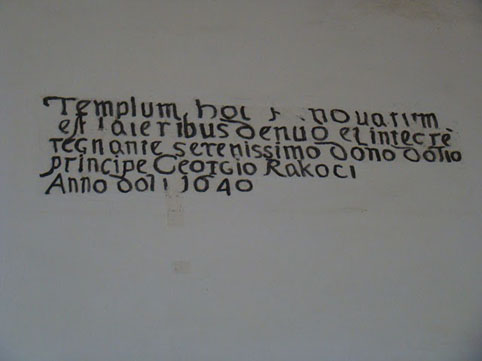 Templum hoc r novatum
est lateribus denuo et integrè
regnante serenissimo dono dosio
principe Georgio Rakoci
Anno doli 1640